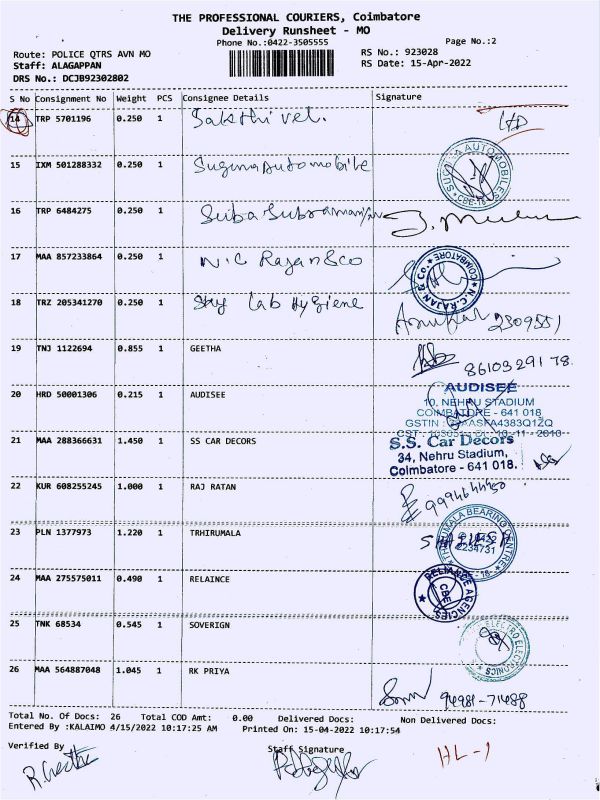 THE PROFESSIONAL COURIERS, Coimbatore
Delivery Runsheet - MO
Phone No.:0422-3505555
Page No.:2
Route: POLICE QTRS AVN MO
RS No.: 923028
Staff: ALAGAPPAN
RS Date: 15-Apr-2022
DRS No.: DCJB92302802
S No Consignment No Weight PCS Consignee Details Signature
14 TRP 5701196 0.250 1 Sakthi vel.
15 IXM 501288332 0.250 1 Suguna Automobile
SUGUNA AUTOMOBILES CBE-18
16 TRP 6484275 0.250 1 Suba Subramaniyan
17 MAA 857233864 0.250 1 N.C Rajan & Co
N.C. RAJAN & Co. COIMBATORE
18 TRZ 205341270 0.250 1 Sky Lab Hygiene
2309551
19 TNJ 1122694 0.855 1 GEETHA
8610329178
20 HRD 50001306 0.215 1 AUDISEE
AUDISEE
10, NEHRU STADIUM
COIMBATORE - 641 018
21 MAA 288366631 1.450 1 SS CAR DECORS
S.S. Car Decors
34, Nehru Stadium,
Coimbatore - 641 018.
22 KUR 608255245 1.000 1 RAJ RATAN
23 PLN 1377973 1.220 1 TRHIRUMALA
THIRUMALA BEARING CENTRE
2234731
24 MAA 275575011 0.490 1 RELAINCE
RELIANCE AGENCIES CBE
25 TNK 68534 0.545 1 SOVERIGN
ELECTRONICS
26 MAA 564887048 1.045 1 RK PRIYA
94981-71488
Total No. Of Docs: 26 Total COD Amt: 0.00 Delivered Docs: Non Delivered Docs:
Entered By :KALAIMO 4/15/2022 10:17:25 AM Printed On: 15-04-2022 10:17:54
Verified By
Staff Signature
HL-1